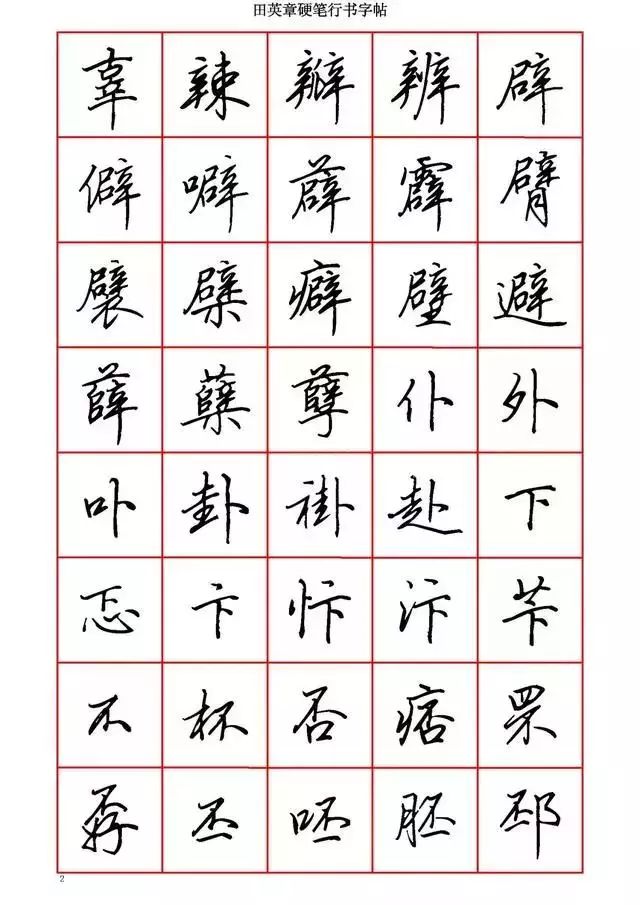 田英章硬笔行书字帖
辜 辣 瓣 辨 辟
僻 噼 薜 霹 臂
襞 檗 癖 壁 避
薛 蘖 孽 仆 外
卟 卦 褂 赴 下
忑 卞 忭 汴 苄
不 杯 否 痞 罘
孬 丕 呸 胚 邳
2